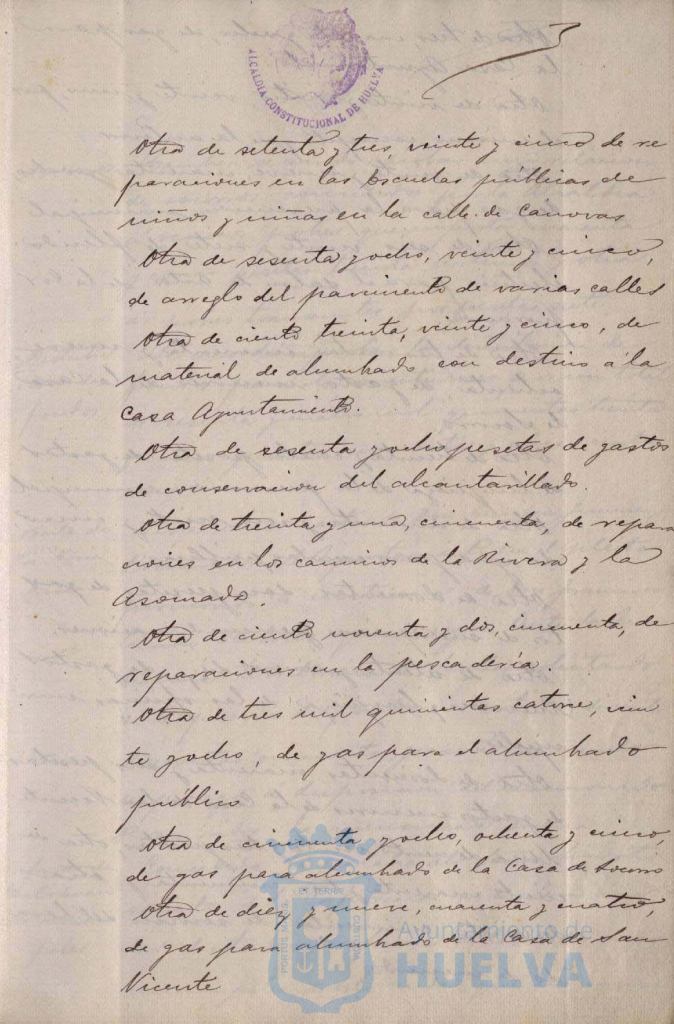 ALCALDIA CONSTITUCIONAL DE HUELVA
Otra de setenta y tres, veinte y cinco de re
paraciones en las Escuelas públicas de
niños y niñas en la calle de Cánovas
Otra de sesenta y ocho, veinte y cinco,
de arreglo del pavimento de varias calles
Otra de ciento treinta, veinte y cinco, de
material de alumbrado con destino á la
Casa Ayuntamiento.
Otra de sesenta y ocho pesetas de gastos
de conservacion del alcantarillado.
Otra de treinta y una, cincuenta, de repara
ciones en los caminos de la Rivera y la
Asomada.
Otra de ciento noventa y dos, cincuenta, de
reparaciones en la pescadería.
Otra de tres mil quinientas catorce, vein
te y ocho, de gas para el alumbrado
público
Otra de cincuenta y ocho, ochenta y cinco,
de gas para alumbrado de la Casa de Socorro
Otra de diez y nueve, cuarenta y cuatro,
de gas para alumbrado de la Casa de San
Vicente
Ayuntamiento de
HUELVA